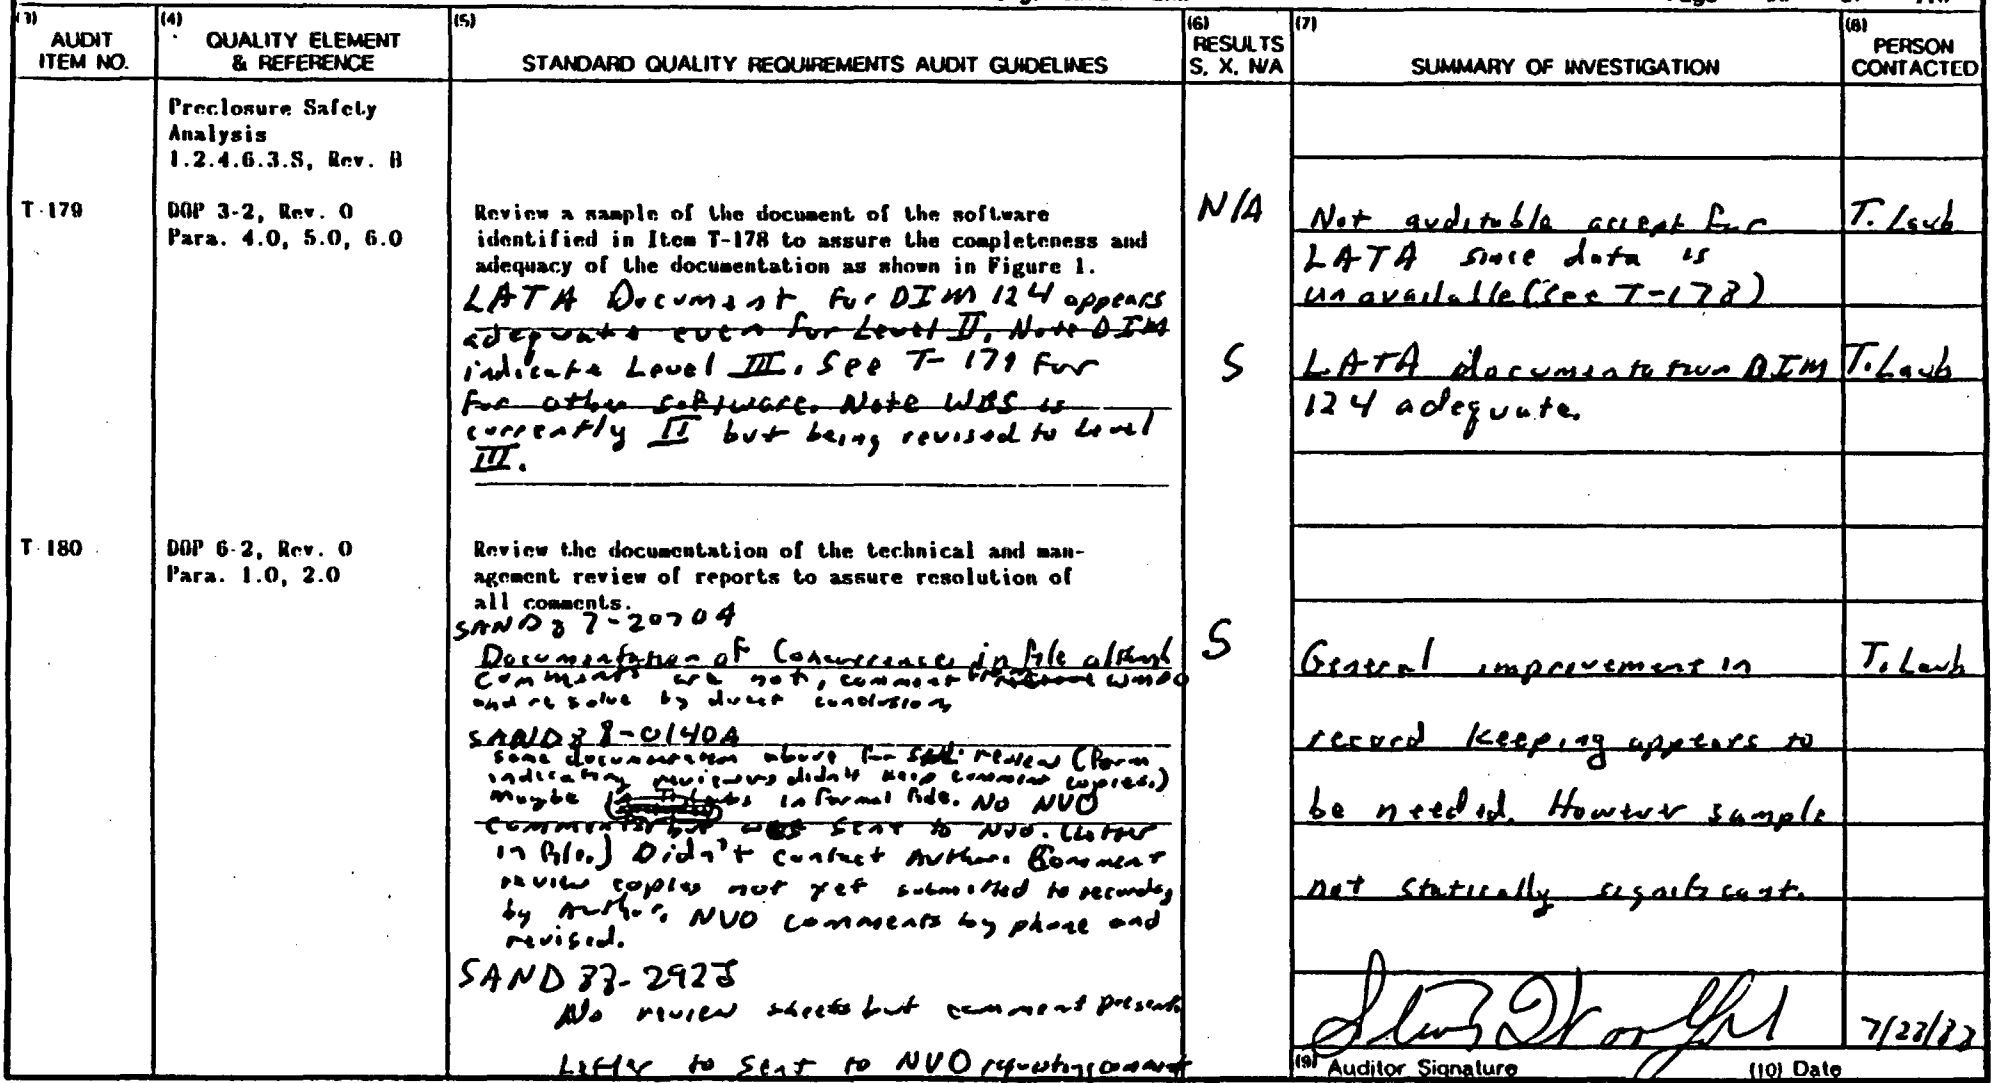 (3) AUDIT ITEM NO.
(4) QUALITY ELEMENT & REFERENCE
(5) STANDARD QUALITY REQUIREMENTS AUDIT GUIDELINES
(6) RESULTS S, X, N/A
(7) SUMMARY OF INVESTIGATION
(8) PERSON CONTACTED
Preclosure Safety
Analysis
1.2.4.6.3.S, Rev. B
T-179
DOP 3-2, Rev. 0
Para. 4.0, 5.0, 6.0
Review a sample of the document of the software
identified in Item T-178 to assure the completeness and
adequacy of the documentation as shown in Figure 1.
LATA Document for DIM 124 appears
adequate even for Level II, Note DIM
indicate Level III. See T-179 for
for other software. Note WBS is
currently II but being revised to Level
III.
N/A
S
Not auditable accept for
LATA since data is
unavailable (see T-178)
LATA documentation DIM
124 adequate.
T. Laub
T. Laub
T-180
DOP 6-2, Rev. 0
Para. 1.0, 2.0
Review the documentation of the technical and man-
agement review of reports to assure resolution of
all comments.
SAND87-2070A
Documentation of Concurrences in file although
comments are not, comment
and resolve by direct conclusion
SAND88-0140A
same documentation above for review (Form
indicating reviewers didn't keep comment copies.)
Maybe informal file. No NVO
but was sent to NVO. (Letter
in file.) Didn't contact Author. Comment
review copies not yet submitted to records,
by Author. NVO comments by phone and
revised.
SAND 88-2925
No review sheets but comment present.
Letter to sent to NVO requesting comment
S
General improvement in
record keeping appears to
be needed. However sample
not statically significant.
T. Laub
7/22/88
(9) Auditor Signature
(10) Date